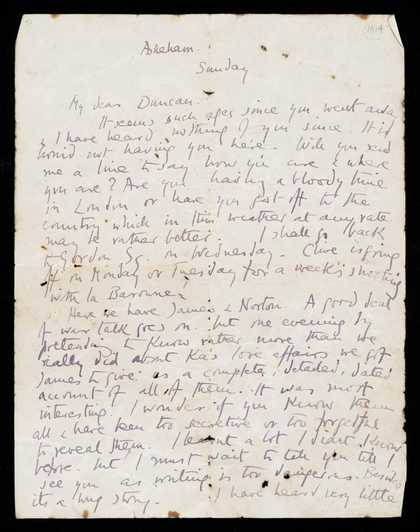 1914
Asheham.
Sunday
My dear Duncan.
It seems such ages since you went away
& I have heard nothing of you since. It is
horrid not having you here. Will you send
me a line to say how you are & where
you are? Are you having a bloody time
in London or have you got off to the
country which in this weather at any rate
may be rather better. I shall go back
to Gordon Sq. on Wednesday. Clive is going
off on Monday or Tuesday for a week's shooting
with la Baronne.
Here we have James & Norton. A good deal
of war talk goes on. but one evening by
pretending to know rather more than we
really did about Ka's love affairs we got
James to give us a complete, detailed, dated
account of all of them. It was most
interesting. I wonder if you know them
all & have been too secretive or too forgetful
to reveal them. I learnt a lot I didn't know
before. but I must wait to tell you till I
see you as writing is too dangerous. Besides
it's a long story. I have heard very little